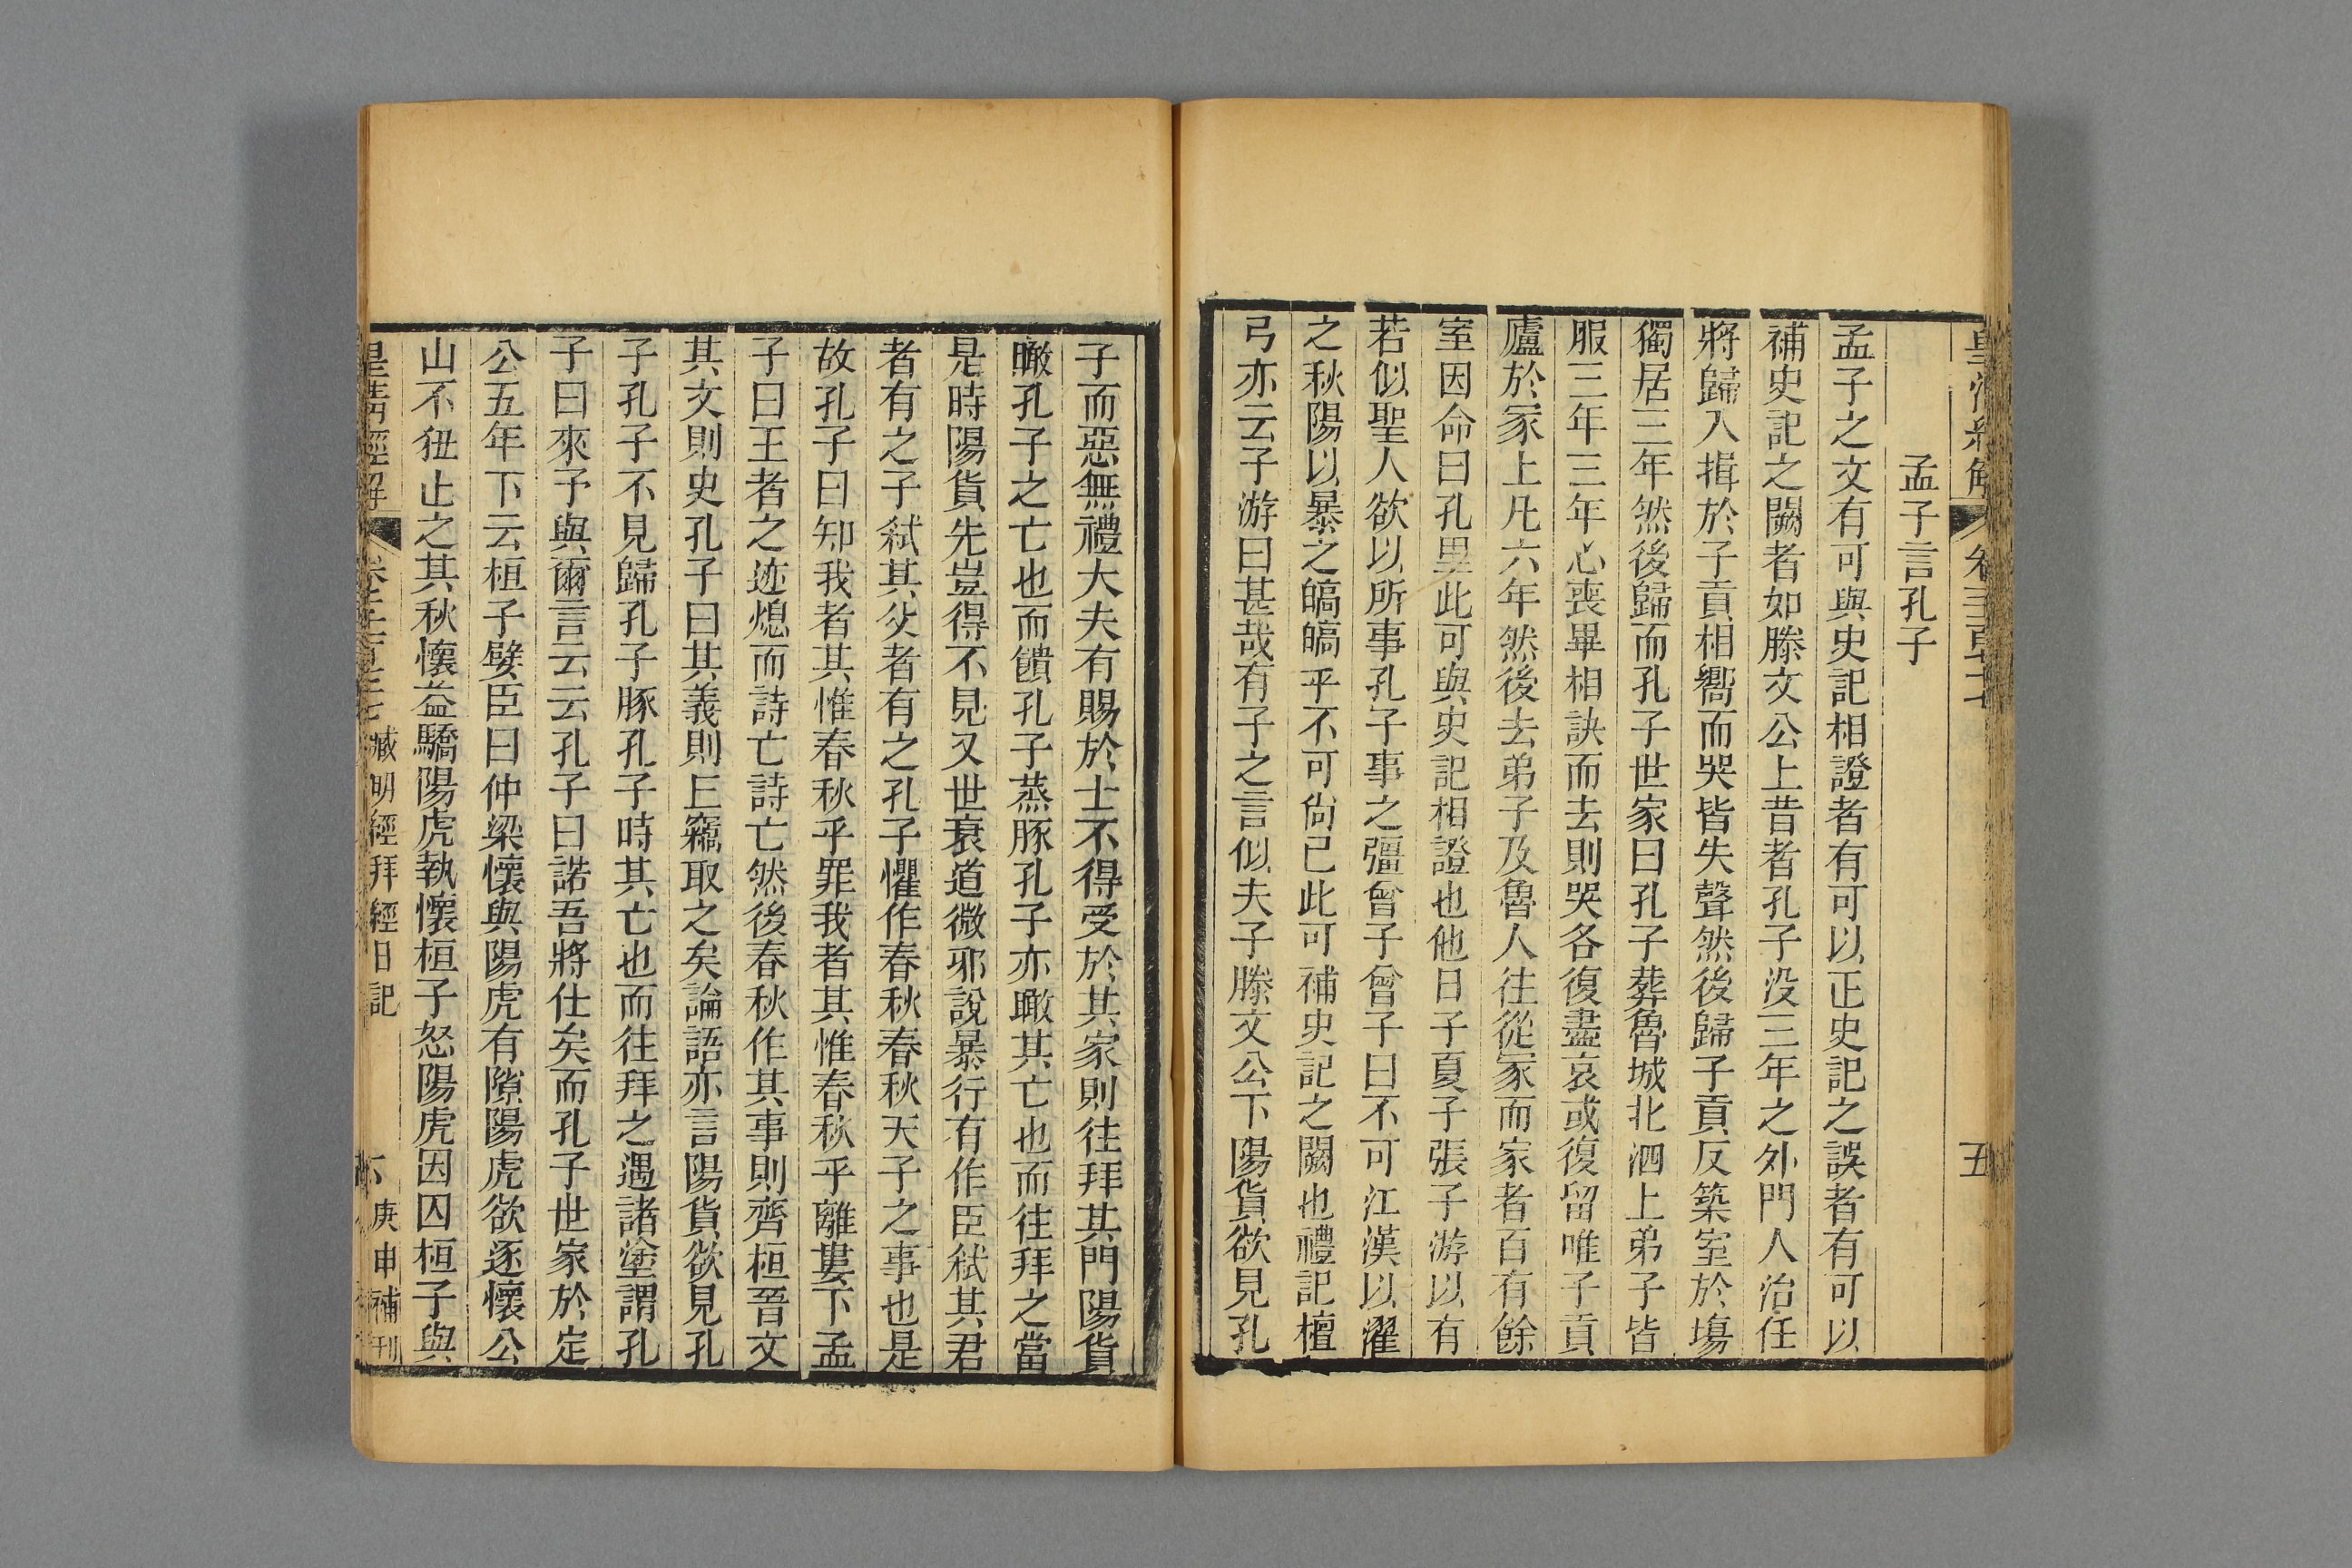 孟子言孔子
孟子之文有可與史記相證者有可以正史記之誤者有可以
補史記之闕者如滕文公上昔者孔子没三年之外門人治任
將歸入揖於子貢相嚮而哭皆失聲然後歸子貢反築室於塲
獨居三年然後歸而孔子世家曰孔子葬魯城北泗上弟子皆
服三年三年心喪畢相訣而去則哭各復盡哀或復留唯子貢
廬於冢上凡六年然後去弟子及魯人往從冢而家者百有餘
室因命曰孔里此可與史記相證也他日子夏子張子游以有
若似聖人欲以所事孔子事之彊曾子曾子曰不可江漢以濯
之秋陽以暴之皜皜乎不可尙已此可補史記之闕也禮記檀
弓亦云子游曰甚哉有子之言似夫子滕文公下陽貨欲見孔
子而惡無禮大夫有賜於士不得受於其家則往拜其門陽貨
瞰孔子之亡也而饋孔子蒸豚孔子亦瞰其亡也而往拜之當
是時陽貨先豈得不見又世衰道微邪說暴行有作臣弑其君
者有之子弑其父者有之孔子懼作春秋春秋天子之事也是
故孔子曰知我者其惟春秋乎罪我者其惟春秋乎離婁下孟
子曰王者之迹熄而詩亡詩亡然後春秋作其事則齊桓晉文
其文則史孔子曰其義則丘竊取之矣論語亦言陽貨欲見孔
子孔子不見歸孔子豚孔子時其亡也而往拜之遇諸塗謂孔
子曰來予與爾言云云孔子曰諾吾將仕矣而孔子世家於定
公五年下云桓子嬖臣曰仲梁懷與陽虎有隙陽虎欲逐懷公
山不狃止之其秋懷益驕陽虎執懷桓子怒陽虎因囚桓子與
皇清經解
臧明經拜經日記
庚申補刊